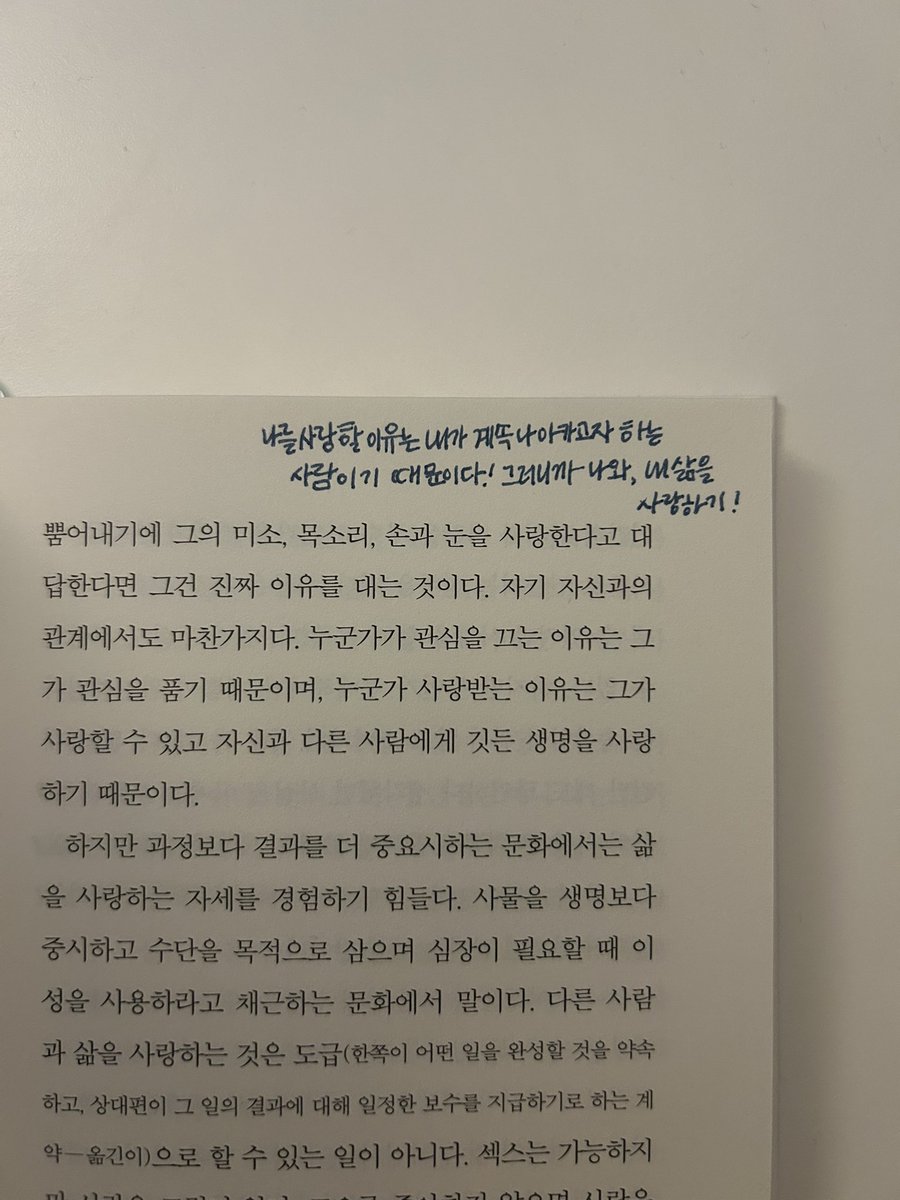 나를 사랑할 이유는 내가 계속 나아가고자 하는
사람이기 때문이다! 그러니까 나와, 내 삶을
사랑하기!
뿜어내기에 그의 미소, 목소리, 손과 눈을 사랑한다고 대
답한다면 그건 진짜 이유를 대는 것이다. 자기 자신과의
관계에서도 마찬가지다. 누군가가 관심을 끄는 이유는 그
가 관심을 품기 때문이며, 누군가 사랑받는 이유는 그가
사랑할 수 있고 자신과 다른 사람에게 깃든 생명을 사랑
하기 때문이다.
하지만 과정보다 결과를 더 중요시하는 문화에서는 삶
을 사랑하는 자세를 경험하기 힘들다. 사물을 생명보다
중시하고 수단을 목적으로 삼으며 심장이 필요할 때 이
성을 사용하라고 채근하는 문화에서 말이다. 다른 사람
과 삶을 사랑하는 것은 도급(한쪽이 어떤 일을 완성할 것을 약속
하고, 상대편이 그 일의 결과에 대해 일정한 보수를 지급하기로 하는 계
약—옮긴이)으로 할 수 있는 일이 아니다. 섹스는 가능하지